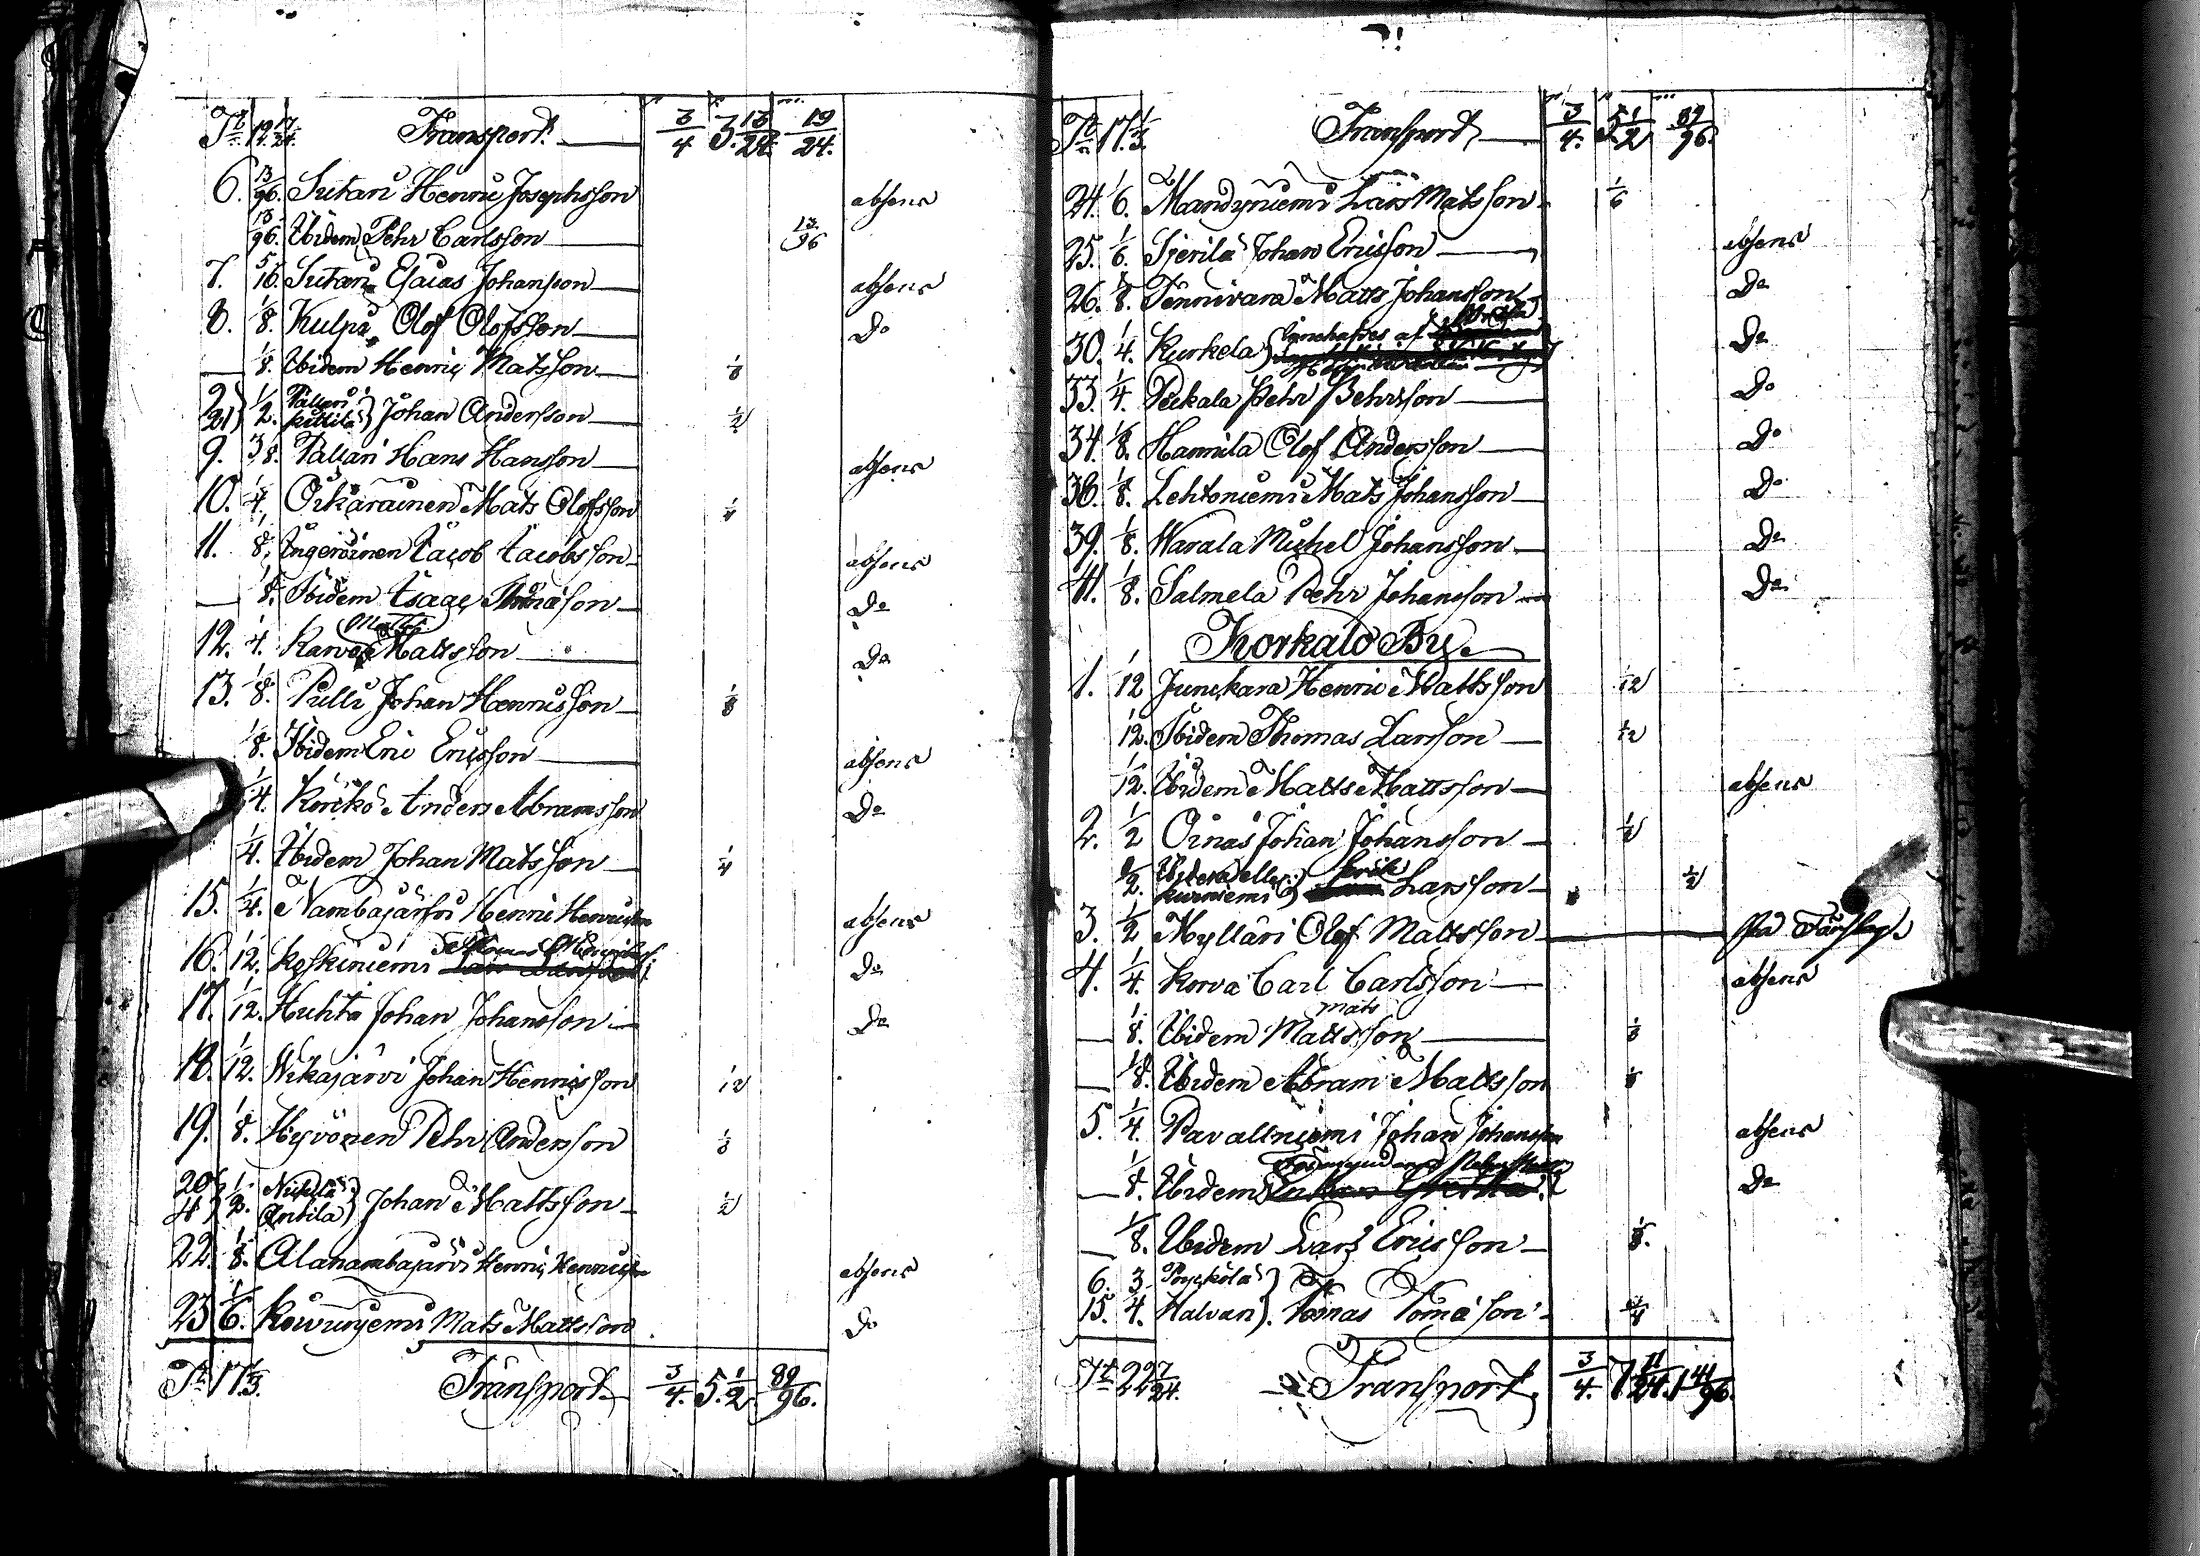 Tt 12 17/24 Transport 3/4 3.13/24 19/24.
6. 13/96. Sutari Henric Josephsson absens
13/96. Ibidem Pehr Carlsson 13/96
7. 5/16. Sutari Esaias Johansson absens
8. 1/8. Kulpa Olof Olofsson Do
— 1/8. Ibidem Henric Matsson 1/8
2
21) 1/2. Pallari Kittilä) Johan Andersson 1/2
9. 3/8. Pallari Hans Hansson absens
10. 1/4. Oikarainen Mats Olofsson 1/4
11. 1/8. Ingeröinen Jacob Jacobsson absens
— 1/8. Ibidem Isaac Do
12. 1/4. Karvo Matts Mattsson Do
13. 1/8. Pulli Johan Henricsson 1/8
1/8. Ibidem Eric Ericsson absens
1/4. Körkö Anders Abramsson Do
1/4. Ibidem Johan Matsson 1/4
15. 1/4. Nambajärfvi Henric Henricsson absens
16. 1/12. Koskiniemi Do
17. 1/12. Huhta Johan Johansson Do
18. 1/12. Wikajärvi Johan Henricsson 1/12
19. 1/8. Hyvönen Pehr Andersson 1/8
20
4) 1/2. Nickilä Antila) Johan Mattsson 1/2
22. 1/8. Alanambajärvi Henric Henricsson absens
23 1/6. Koivuniemi Mats Mattsson Do
Tt 17 1/3. Transport 3/4. 5.1/2 89/96.
Tt 17 1/3. Transport 3/4. 5 1/2 89/96.
24. 1/6. Mandyniemi Lars Matsson 1/6
25. 1/6. Sierilä Johan Ericsson absens
26. 1/8. Tennivara Matts Johansson Do
30. 1/4. Kurkela) af Do
33. 1/4. Peckala Pehr Pehrsson Do
34. 1/8. Hannila Olof Andersson Do
36. 1/8. Lehtoniemi Mats Johansson Do
39. 1/8. Warala Michel Johansson Do
41. 1/8. Salmela Pehr Johansson Do
Korkalo By.
1. 1/12 Junckara Henric Mattsson 1/12
1/12. Ibidem Thomas Larsson 1/12
1/12. Ibidem Matts Mattsson absens
2. 1/2 Oinas Johan Johansson 1/2
1/2. eller Kurniemi) Erik Larsson 1/2
3. 1/2 Myllari Olof Mattsson
4. 1/4. Korva Carl Carlsson absens
— 1/8. Ibidem Mats Mattsson 1/8
— 1/8. Ibidem Abram Mattsson 1/8
5. 1/4. Pavallniemi Johan Johansson absens
— 1/8. Ibidem Do
— 1/8. Ibidem Lars Ericsson 1/8.
6.
15. 3/4. Poyckölä Halvari). Tomas Tomasson 3/4
Tt 22 7/24. Transport 3/4. 7 11/24. 1 41/96.